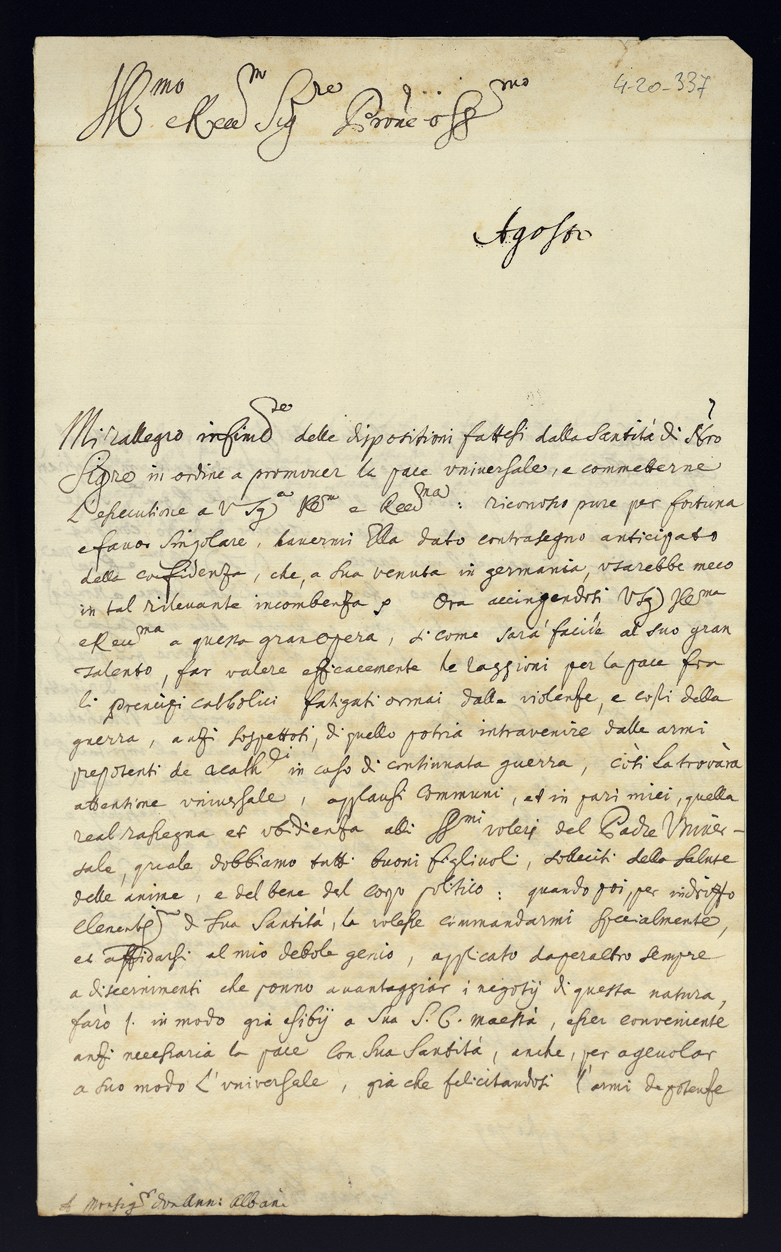 Ill.mo e Reu.m Sig.re Prone oss.mo
4-20-337
Agosto
Mi rallegro infinit.te delle dispositioni fattesi dalla Santità di Nro
Sigre in ordine a promouer la pace vniuersale, e commetterne
L'esecutione a V Sig.a Ill.ma e Reu.ma: riconosco pure per fortuna
e fauor singolare, hauermi Ella dato contrasegno anticipato
della confidenza, che, a sua venuta in germania, vsarebbe meco
in tal rileuante incombenza. Ora accingendosi VSig Ill.ma
e Reu.ma a questa gran opera, si come sarà facile al suo gran
talento, far valere efficacemente le raggioni per la pace fra
li prencipi catholici fatigati ormai dalle violenze, e costi della
guerra, anzi sospettosi, di quello potria intrauenire dalle armi
prepotenti de acath.ci in caso di continuata guerra, così la trouarà
attentione vniuersale, applausi communi, et in pari miei, quella
real rassegna et vbidienza alli SS.mi voleri del Padre Vniuer-
sale, quale dobbiamo tutti buoni figliuoli, solleciti della salute
delle anime, e del bene del corpo politico: quando poi, per indrizzo
clementis.mo di Sua Santità, la volesse commandarmi specialmente,
et affidarsi al mio debole genio, applicato daperaltro sempre
a discernimenti che ponno auantaggiar i negotij di questa natura,
farò in modo già esibij a Sua S. C. maestà, esser conueniente
anzi necessaria la pace con Sua Santità, anche, per ageuolar
a suo modo L'vniuersale, già che felicitandosi l'armi da potenze
A Monsig.re Don Ann: Albani